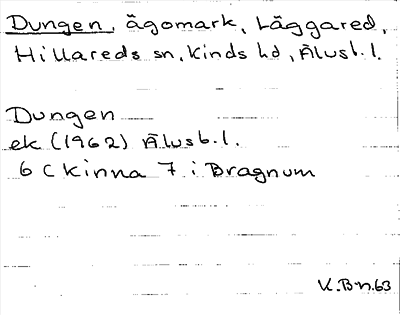 Dungen, ägomark, Läggared,
Hillareds sn, Kinds hd, Älvsb. l.
Dungen
ek (1962) Älvsb. l.
6 C Kinna 7 i Bragnum
K. Bn. 63